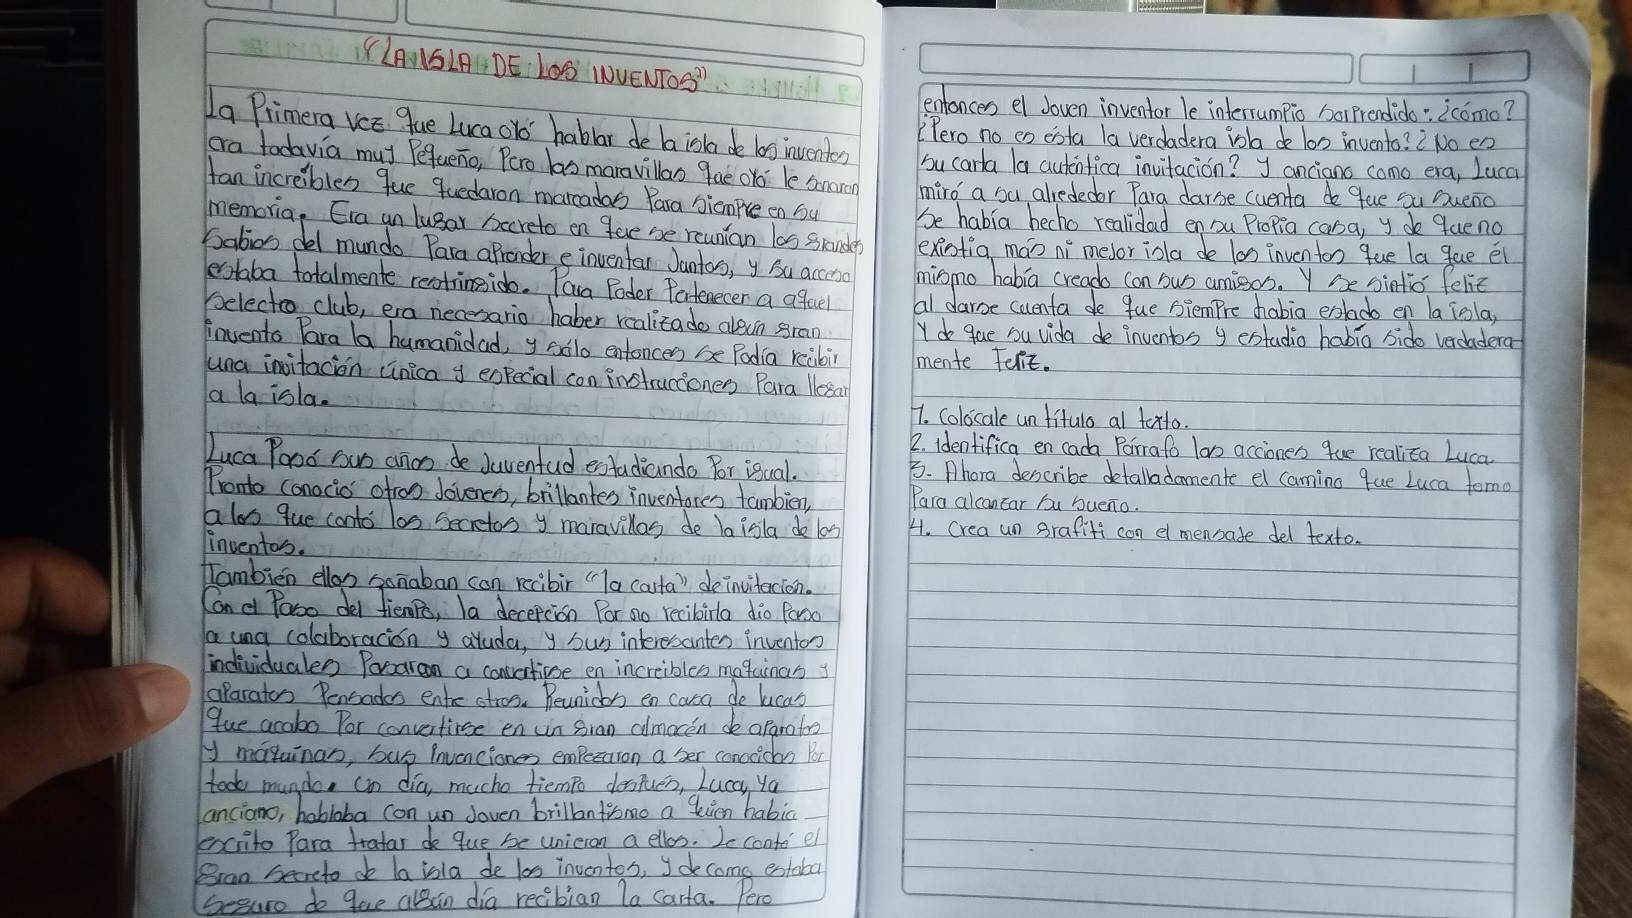 "LA ISLA DE LOS INVENTOS"
La Primera vez que Luca oyó hablar de la isla de los inventos
era todavía muy Pequeño, Pero las maravillas que oyó le sonaron
tan increíbles que quedaron marcados Para siempre en su
memoria. Era un lugar secreto en que se reunían los grandes
sabios del mundo Para aprender e inventar Juntos, y su acceso
estaba totalmente restringido. Para Poder Pertenecer a aquel
selecto club, era necesario haber realizado algún gran
invento Para la humanidad, y sólo entonces se Podía recibir
una invitación única y especial con instrucciones Para llegar
a la isla.
Luca Pasó sus años de Juventud estudiando Por igual.
Pronto conoció otros Jóvenes, brillantes inventores tambien,
a los que contó los secretos y maravillas de la isla de los
inventos.
También ellos soñaban con recibir "la carta" de invitación.
Con el Paso del tiempo, la decepción Por no recibirla dio Paso
a una colaboración y ayuda, y sus interesantes inventos
individuales Pasaron a convertirse en increibles maquinas y
aparatos Pensados entre otros. Reunidos en casa de lucas
que acabo Por convertirse en un gran almacén de aparatos
y máquinas, sus Invenciones empezaron a ser conocidos Por
todo mundo. Un día, mucho tiempo después, Luca, ya
anciano, hablaba con un Joven brillantismo a quien habia
escrito Para tratar de que se unieran a ellos. Le contó el
gran secreto de la isla de los inventos, y de como estaba
seguro de que algún día recibian la carta. Pero
entonces el Joven inventor le interrumpio sorprendido: ¿cómo?
¿Pero no es ésta la verdadera isla de los invento? ¿No es
su carta la auténtica invitación? y anciano como era, Luca
miró a su alrededor Para darse cuenta de que su sueño
se había hecho realidad en su Propia casa, y de que no
existia más ni mejor isla de los inventos que la que él
mismo había creado con sus amigos. Y se sintió feliz
al darse cuenta de que siempre habia estado en la isla,
Y de que su vida de inventos y estudio había sido verdadera
mente Feliz.
1. Colócale un título al texto.
2. Identifica en cada Párrafo las acciones que realiza Luca.
3. Ahora describe detalladamente el camino que Luca tomo
Para alcanzar su sueño.
4. Crea un grafiti con el mensaje del texto.